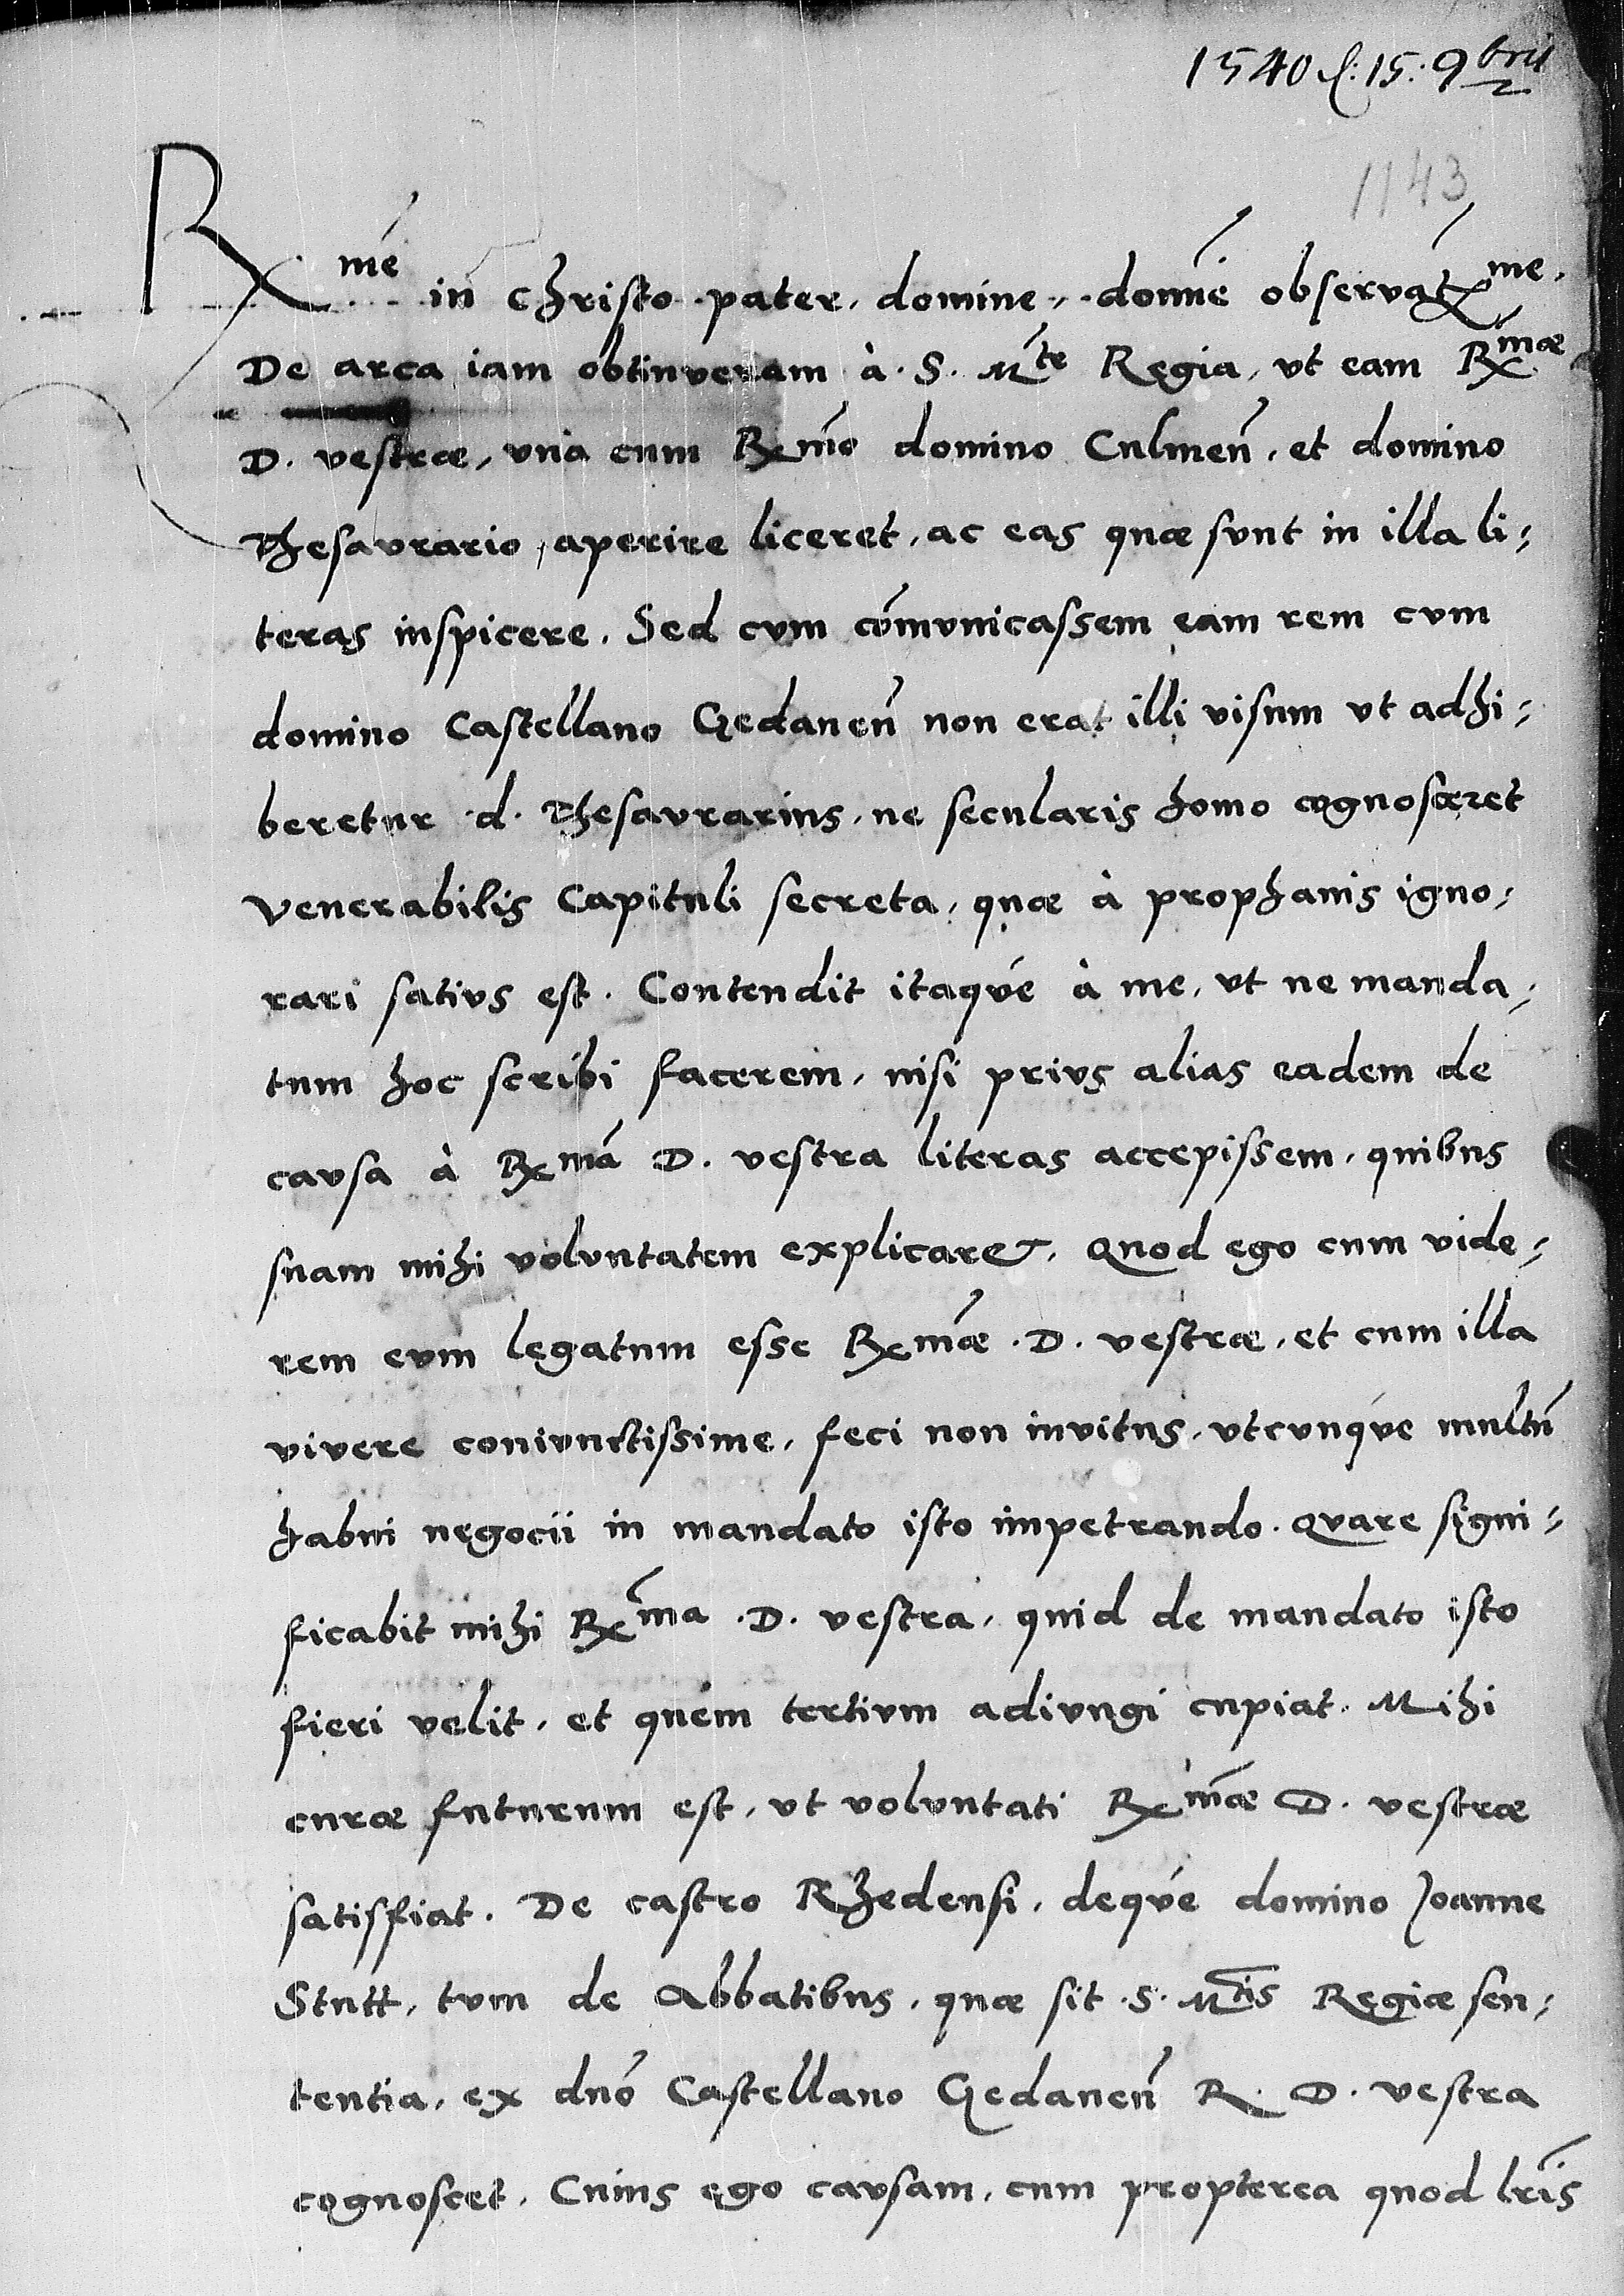 1540 d: 15: 9bris
1143
Rme in Christo pater, domine, domine observatme.
De arca iam obtinveram à S. Mte Regia, vt eam Rmæ
D. vestræ, vna cum Rmo domino Culmen, et domino
Thesavrario, aperire liceret, ac eas quæ svnt in illa li-
teras inspicere. Sed cvm comvnicassem eam rem cvm
domino Castellano Gedanen non erat illi visum vt adhi-
beretur d. Thesavrarius, ne secularis homo cognosceret
Venerabilis Capituli secreta, quæ à prophanis igno-
rari sativs est. Contendit itaqve à me, vt ne manda-
tum hoc scribi facerem, nisi privs alias eadem de
cavsa à Rma D. vestra literas accepissem, quibus
suam mihi volvntatem explicaret. Quod ego cum vide-
rem evm legatum esse Rmæ D. vestræ, et cum illa
vivere conivnctissime, feci non invitus, vtcvnqve multu
habui negocii in mandato isto impetrando. Qvare signi-
ficabit mihi Rma D. vestra, quid de mandato isto
fieri velit, et quem tertivm adivngi cupiat. Mihi
curæ futurum est, vt volvntati Rmæ D. vestræ
satisfiat. De castro Rhedensi, deqve domino Joanne
Stutt, tvm de Abbatibus, quæ sit S. Mtis Regiæ sen-
tentia, ex dno Castellano Gedanen R. D. vestra
cognoscet. Cuius ego cavsam, cum propterea quod lris